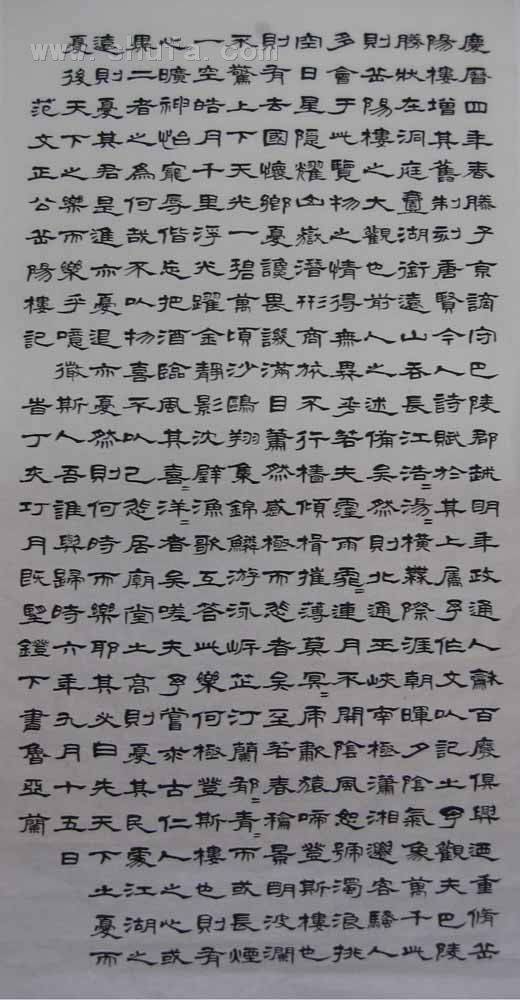 慶曆四年春滕子京謫守巴陵郡越明年政通人龢百廢俱興迺重脩岳
陽樓增其舊制刻唐賢今人詩賦於其上屬予作文以記之予觀夫巴陵
勝狀在洞庭壹湖銜遠山吞長江浩=湯=橫無際涯朝暉夕陰氣象萬千此
則岳陽樓之大觀也前人之述備矣然則北通巫峽南極瀟湘遷客騷人
多會于此覽物之情得無異乎若夫霪雨霏=連月不開陰風怒號濁浪排
空日星隱耀山嶽潛形商旅不行檣傾楫摧薄莫冥=虎嘯猿啼登斯樓也
則有去國懷鄉憂讒畏譏滿目蕭然感極而悲者矣至若春龢景明波瀾
不驚上下天光一碧萬頃沙鷗翔集錦鱗游泳岸芷汀蘭郁=青=而或長煙
一空皓月千里浮光躍金靜影沈璧漁歌互答此樂何極登斯樓也則有
心曠神怡寵辱偕忘把酒臨風其喜=洋=者矣嗟夫予嘗求古仁人之心或
異二者之為何哉不以物喜不以己悲居廟堂之高則憂其民處江湖之
遠則憂其君是進亦憂退亦憂然則何時而樂耶其必曰先天下之憂而
憂後天下之樂而樂乎噫微斯人吾誰與歸時六年九月十五日
范文正公岳陽樓記旹丁亥巧月既望鐙下書魯亞蘭
www.shufa.com